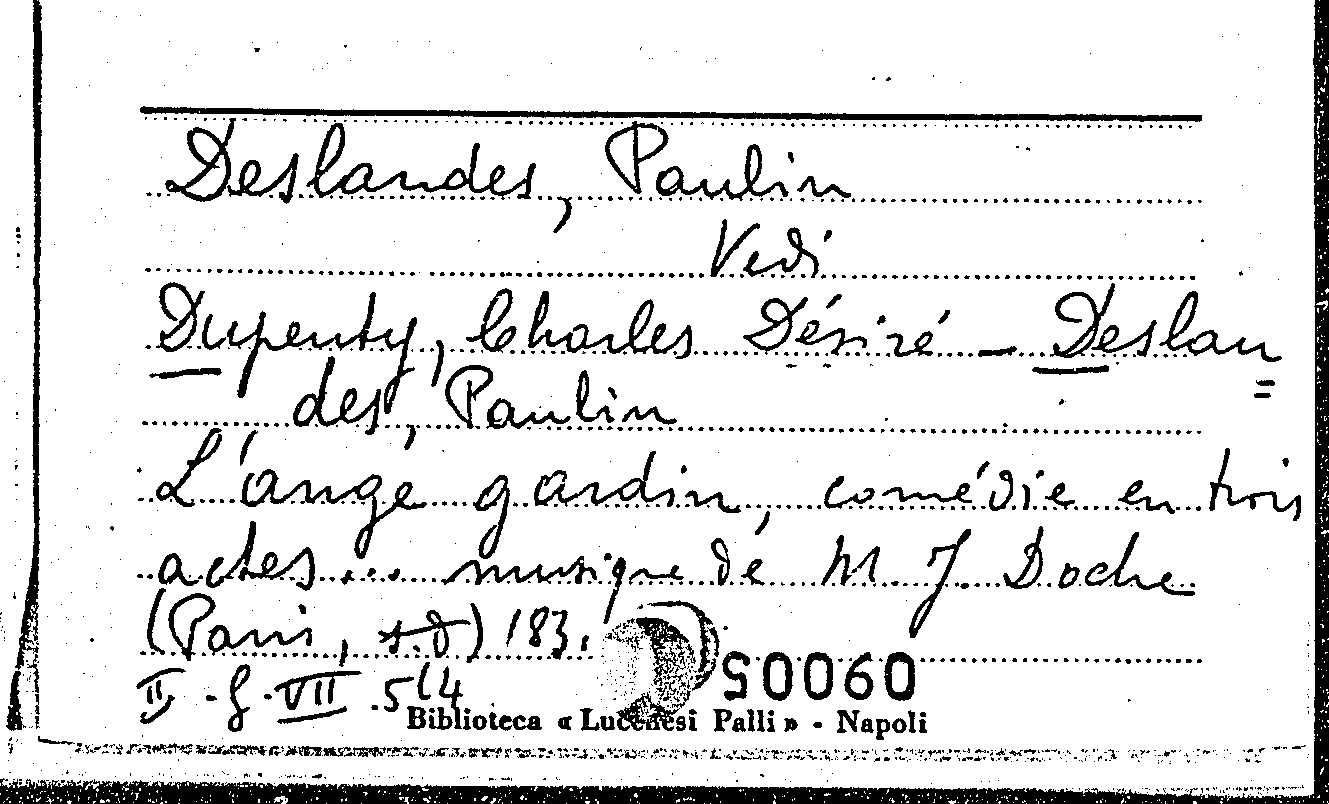 Deslandes, Paulin
Vedi
Dupeuty, Charles Désiré - Deslan=
des, Paulin
L'ange gardin, comédie en trois
actes... musique de M J. Doche
(Paris, s.d) 183.
II - g - VII . 5(4
50060
Biblioteca « Lucchesi Palli » - Napoli